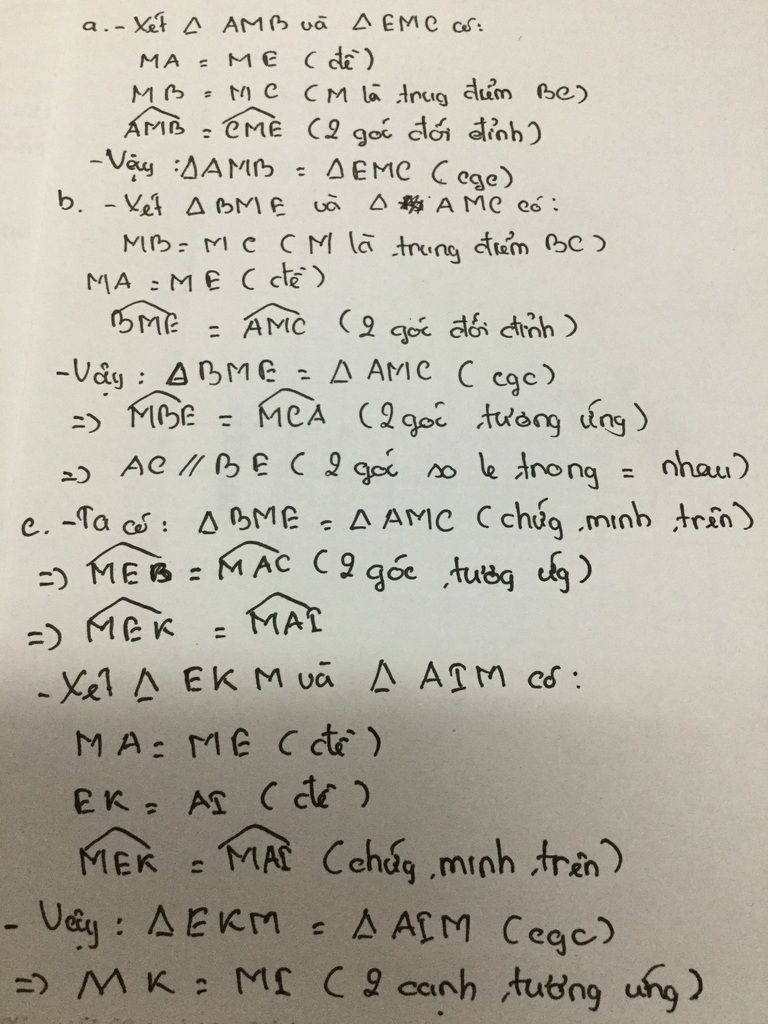 a. - Xét Δ AMB và Δ EMC có:
MA = ME (đề)
MB = MC (M là trug điểm BC)
AMB = CME (2 góc đối đỉnh)
- Vậy : Δ AMB = Δ EMC (cgc)
b. - Xét Δ BME và Δ AMC có:
MB = MC (M là trung điểm BC)
MA = ME (đề)
BME = AMC (2 góc đối đỉnh)
- Vậy : Δ BME = Δ AMC (cgc)
=> MBE = MCA (2 góc tương ứng)
=> AC // BE (2 góc so le trong = nhau)
c. - Ta có : Δ BME = Δ AMC (chứg minh trên)
=> MEB = MAC (2 góc tươg ứg)
=> MEK = MAI
- Xét Δ EKM và Δ AIM có:
MA = ME (đề)
EK = AI (đề)
MEK = MAI (chứg minh trên)
- Vậy : Δ EKM = Δ AIM (cgc)
=> MK = MI (2 cạnh tương ứng)